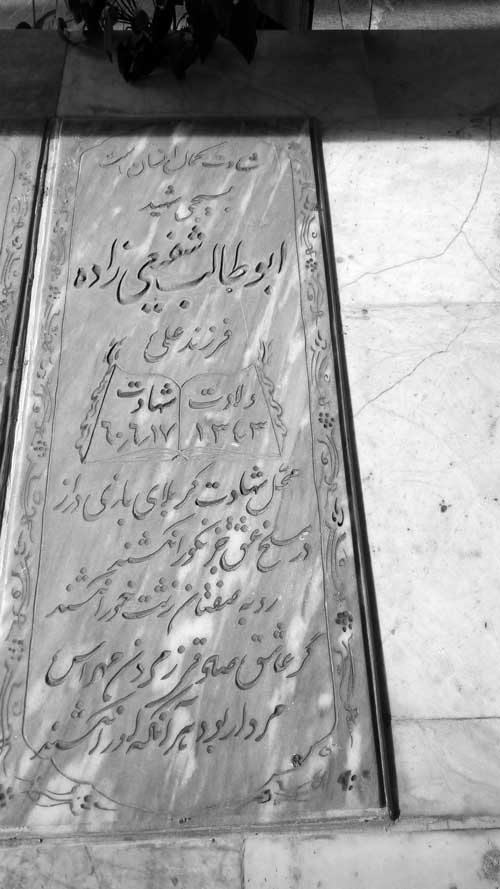 شهادت کمال انسان است
بسیجی شهید
ابوطالب شفیعی زاده
فرزند علی
ولادت شهادت
۱۳۴۳ ۶۰،۶،۱۷
محل شهادت کربلای بازی دراز
در مسلخ عشق جز نکو را نکشند
روبه صفتان زشت خو را نکشند
گر عاشق صادقی ز مردن مهراس
مردار بود هر آنکه او را نکشند